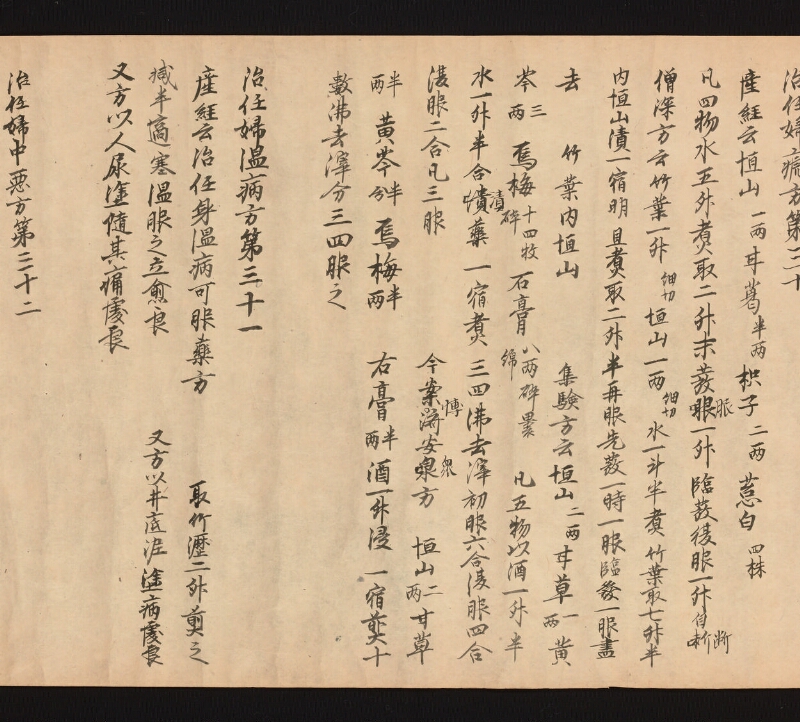 治任婦瘧方第三十
産経云恒山一両甘葛半両枳子二両葱白四株
凡四物水五升煮取二升未發服一升臨發後服一升自断
僧深方云竹葉一升細切恒山一両細切水一斗半煮竹葉取七升半
内恒山漬一宿明旦煮取二升半再服先發一時一服臨發一服盡
去竹葉内恒山 集驗方云恒山二両甘草一両黄
芩三両烏梅十四枚碎石膏八両碎綿裹凡五物以酒一升半
水一升半合漬藥一宿煮三四沸去滓初服六合後服四合
後服二合凡三服 今案博濟安衆方恒山二両甘草
半両黄芩半分烏梅半両石膏半両酒一升浸一宿煎十
數沸去滓分三四服之
治任婦温病方第三十一
産経云治任身温病可服藥方 取竹瀝二升煎之
減半適寒温服之立愈良 又方以井底泥塗病處良
又方以人尿塗隨其痛處良
治任婦中惡方第三十二